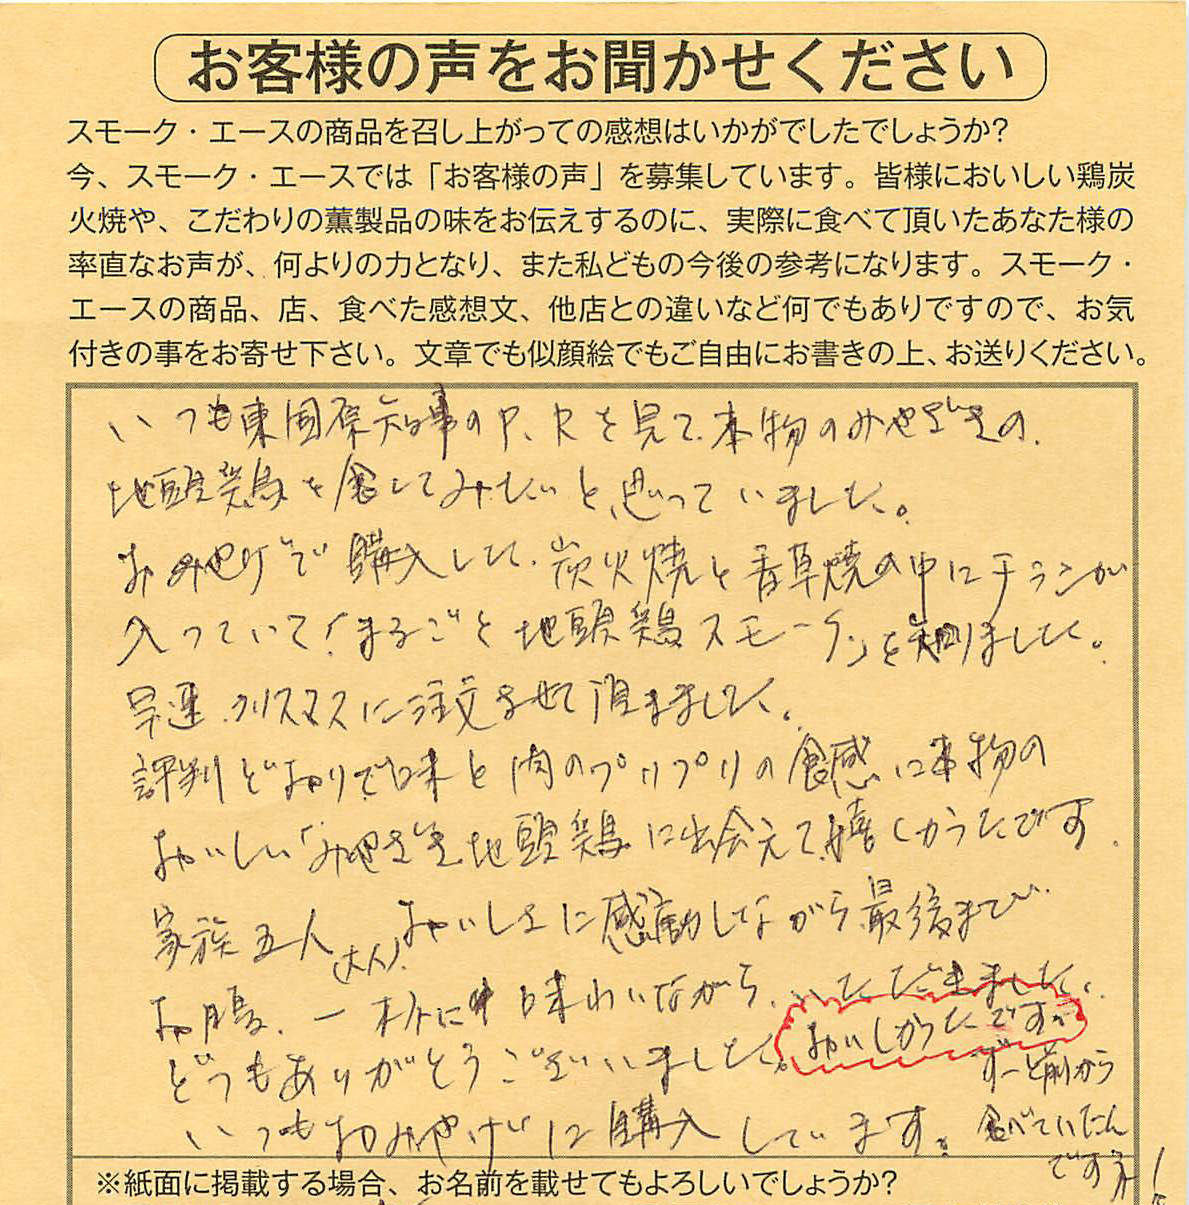 お客様の声をお聞かせください
スモーク・エースの商品を召し上がっての感想はいかがでしたでしょうか?
今、スモーク・エースでは「お客様の声」を募集しています。皆様においしい鶏炭
火焼や、こだわりの薫製品の味をお伝えするのに、実際に食べて頂いたあなた様の
率直なお声が、何よりの力となり、また私どもの今後の参考になります。スモーク・
エースの商品、店、食べた感想文、他店との違いなど何でもありですので、お気
付きの事をお寄せ下さい。文章でも似顔絵でもご自由にお書きの上、お送りください。
いつも東国原知事のP.Rを見て、本物のみやざきの
地頭鶏を食してみたいと思っていました。
おみやげで購入した、炭火焼と香草焼の中にチラシが
入っていて「まるごと地頭鶏スモーク」を知りました。
早速クリスマスに注文させて頂きました。
評判どおりで味と肉のプリプリの食感に本物の
おいしい「みやざき地頭鶏に出会えて、嬉しかったです。
家族五人(大人)おいしさに感動しながら、最後まで
お腹、一杯に味わいながら、いただきました。
どうもありがとうございました。おいしかったです。
いつもおみやげに購入しています。ずーと前から
食べていたんですネ!
※紙面に掲載する場合、お名前を載せてもよろしいでしょうか?